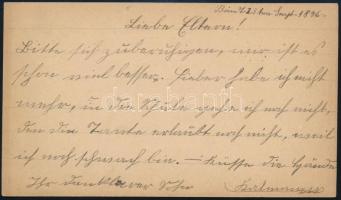 ten Sept. 1896.
Liebe Eltern!
Bitte sich zu beruhigen, mir ist es
schon viel besser. Fieber habe ich nicht
mehr, in die Schule gehe ich noch nicht,
den die Tante erlaubt noch nicht, weil
ich noch schwach bin. — Küsse die Hände
Ihr dankbarer Sohn